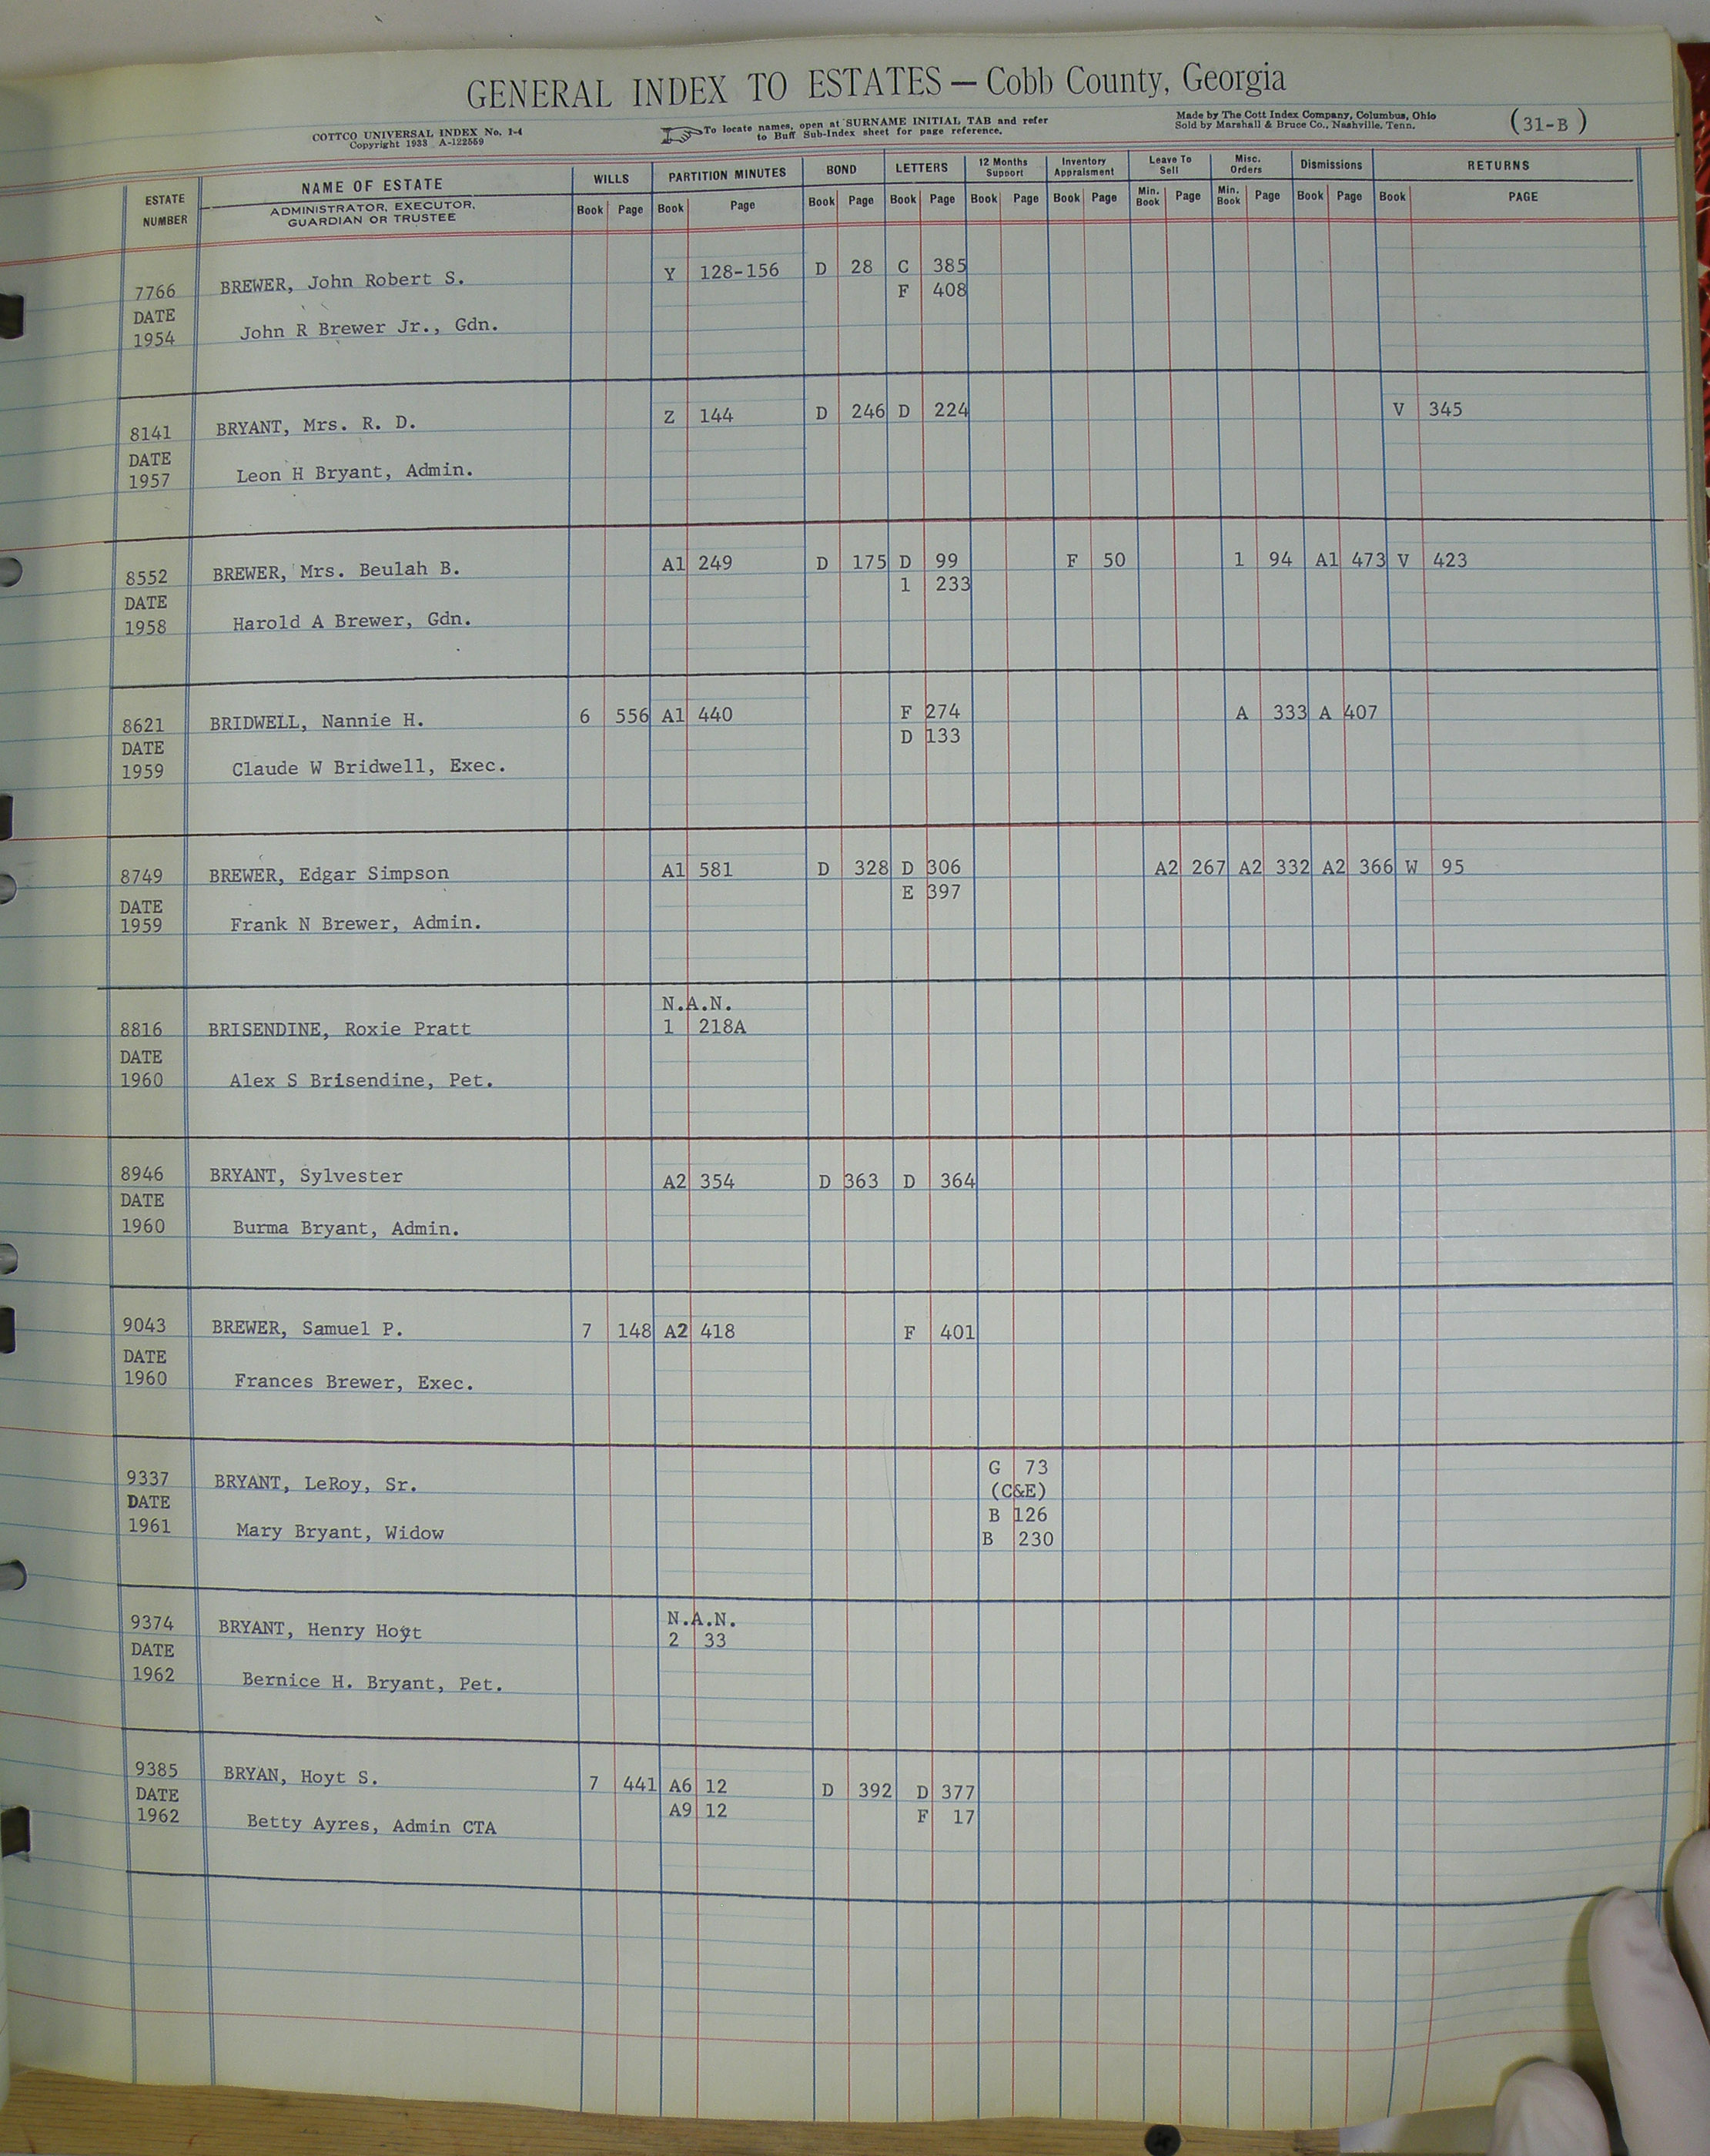 GENERAL INDEX TO ESTATES — Cobb County, Georgia
COTTCO UNIVERSAL INDEX No. 1-4
Copyright 1933 A-122559
To locate names, open at SURNAME INITIAL TAB and refer
to Buff Sub-Index sheet for page reference.
Made by The Cott Index Company, Columbus, Ohio
Sold by Marshall & Bruce Co., Nashville, Tenn.
(31-B)
ESTATE NUMBER
NAME OF ESTATE
ADMINISTRATOR, EXECUTOR,
GUARDIAN OR TRUSTEE
WILLS PARTITION MINUTES BOND LETTERS 12 Months Support Inventory Appraisment Leave To Sell Misc. Orders Dismissions RETURNS
Book Page Book Page Book Page Book Page Book Page Book Page Min. Book Page Min. Book Page Book Page Book PAGE
7766 BREWER, John Robert S. Y 128-156 D 28 C 385
F 408
DATE
1954 John R Brewer Jr., Gdn.
8141 BRYANT, Mrs. R. D. Z 144 D 246 D 224 V 345
DATE
1957 Leon H Bryant, Admin.
8552 BREWER, Mrs. Beulah B. A1 249 D 175 D 99 F 50 1 94 A1 473 V 423
1 233
DATE
1958 Harold A Brewer, Gdn.
8621 BRIDWELL, Nannie H. 6 556 A1 440 F 274 A 333 A 407
D 133
DATE
1959 Claude W Bridwell, Exec.
8749 BREWER, Edgar Simpson A1 581 D 328 D 306 A2 267 A2 332 A2 366 W 95
E 397
DATE
1959 Frank N Brewer, Admin.
N.A.N.
8816 BRISENDINE, Roxie Pratt 1 218A
DATE
1960 Alex S Brisendine, Pet.
8946 BRYANT, Sylvester A2 354 D 363 D 364
DATE
1960 Burma Bryant, Admin.
9043 BREWER, Samuel P. 7 148 A2 418 F 401
DATE
1960 Frances Brewer, Exec.
9337 BRYANT, LeRoy, Sr. G 73
(C&E)
DATE B 126
1961 Mary Bryant, Widow B 230
9374 BRYANT, Henry Hoyt N.A.N.
2 33
DATE
1962 Bernice H. Bryant, Pet.
9385 BRYAN, Hoyt S. 7 441 A6 12 D 392 D 377
A9 12 F 17
DATE
1962 Betty Ayres, Admin CTA